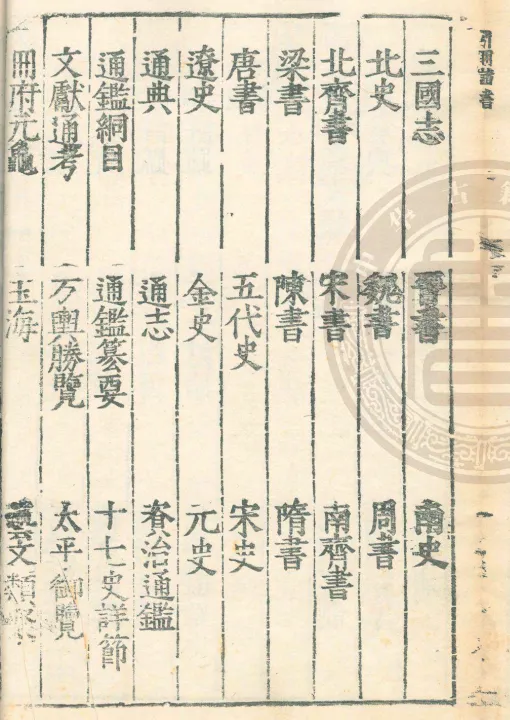 三國志 晉書 南史
北史 魏書 周書
北齊書 宋書 南齊書
梁書 陳書 隋書
唐書 五代史 宋史
遼史 金史 元史
通典 通志 資治通鑑
通鑑綱目 通鑑纂要 十七史詳節
文獻通考 方輿勝覽 太平御覽
冊府元龜 玉海 藝文類聚